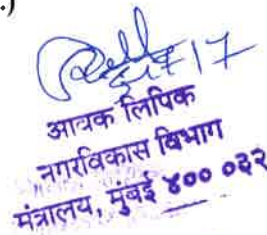 .)
आवक लिपिक
नगरविकास विभाग
मंत्रालय, मुंबई ४०० ०३२